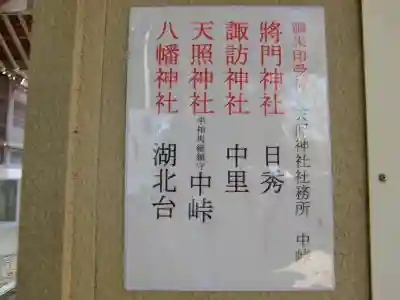 御朱印受付 天照神社社務所 中峠
將門神社 日秀
諏訪神社 中里
天照神社 中峠
八幡神社 湖北台